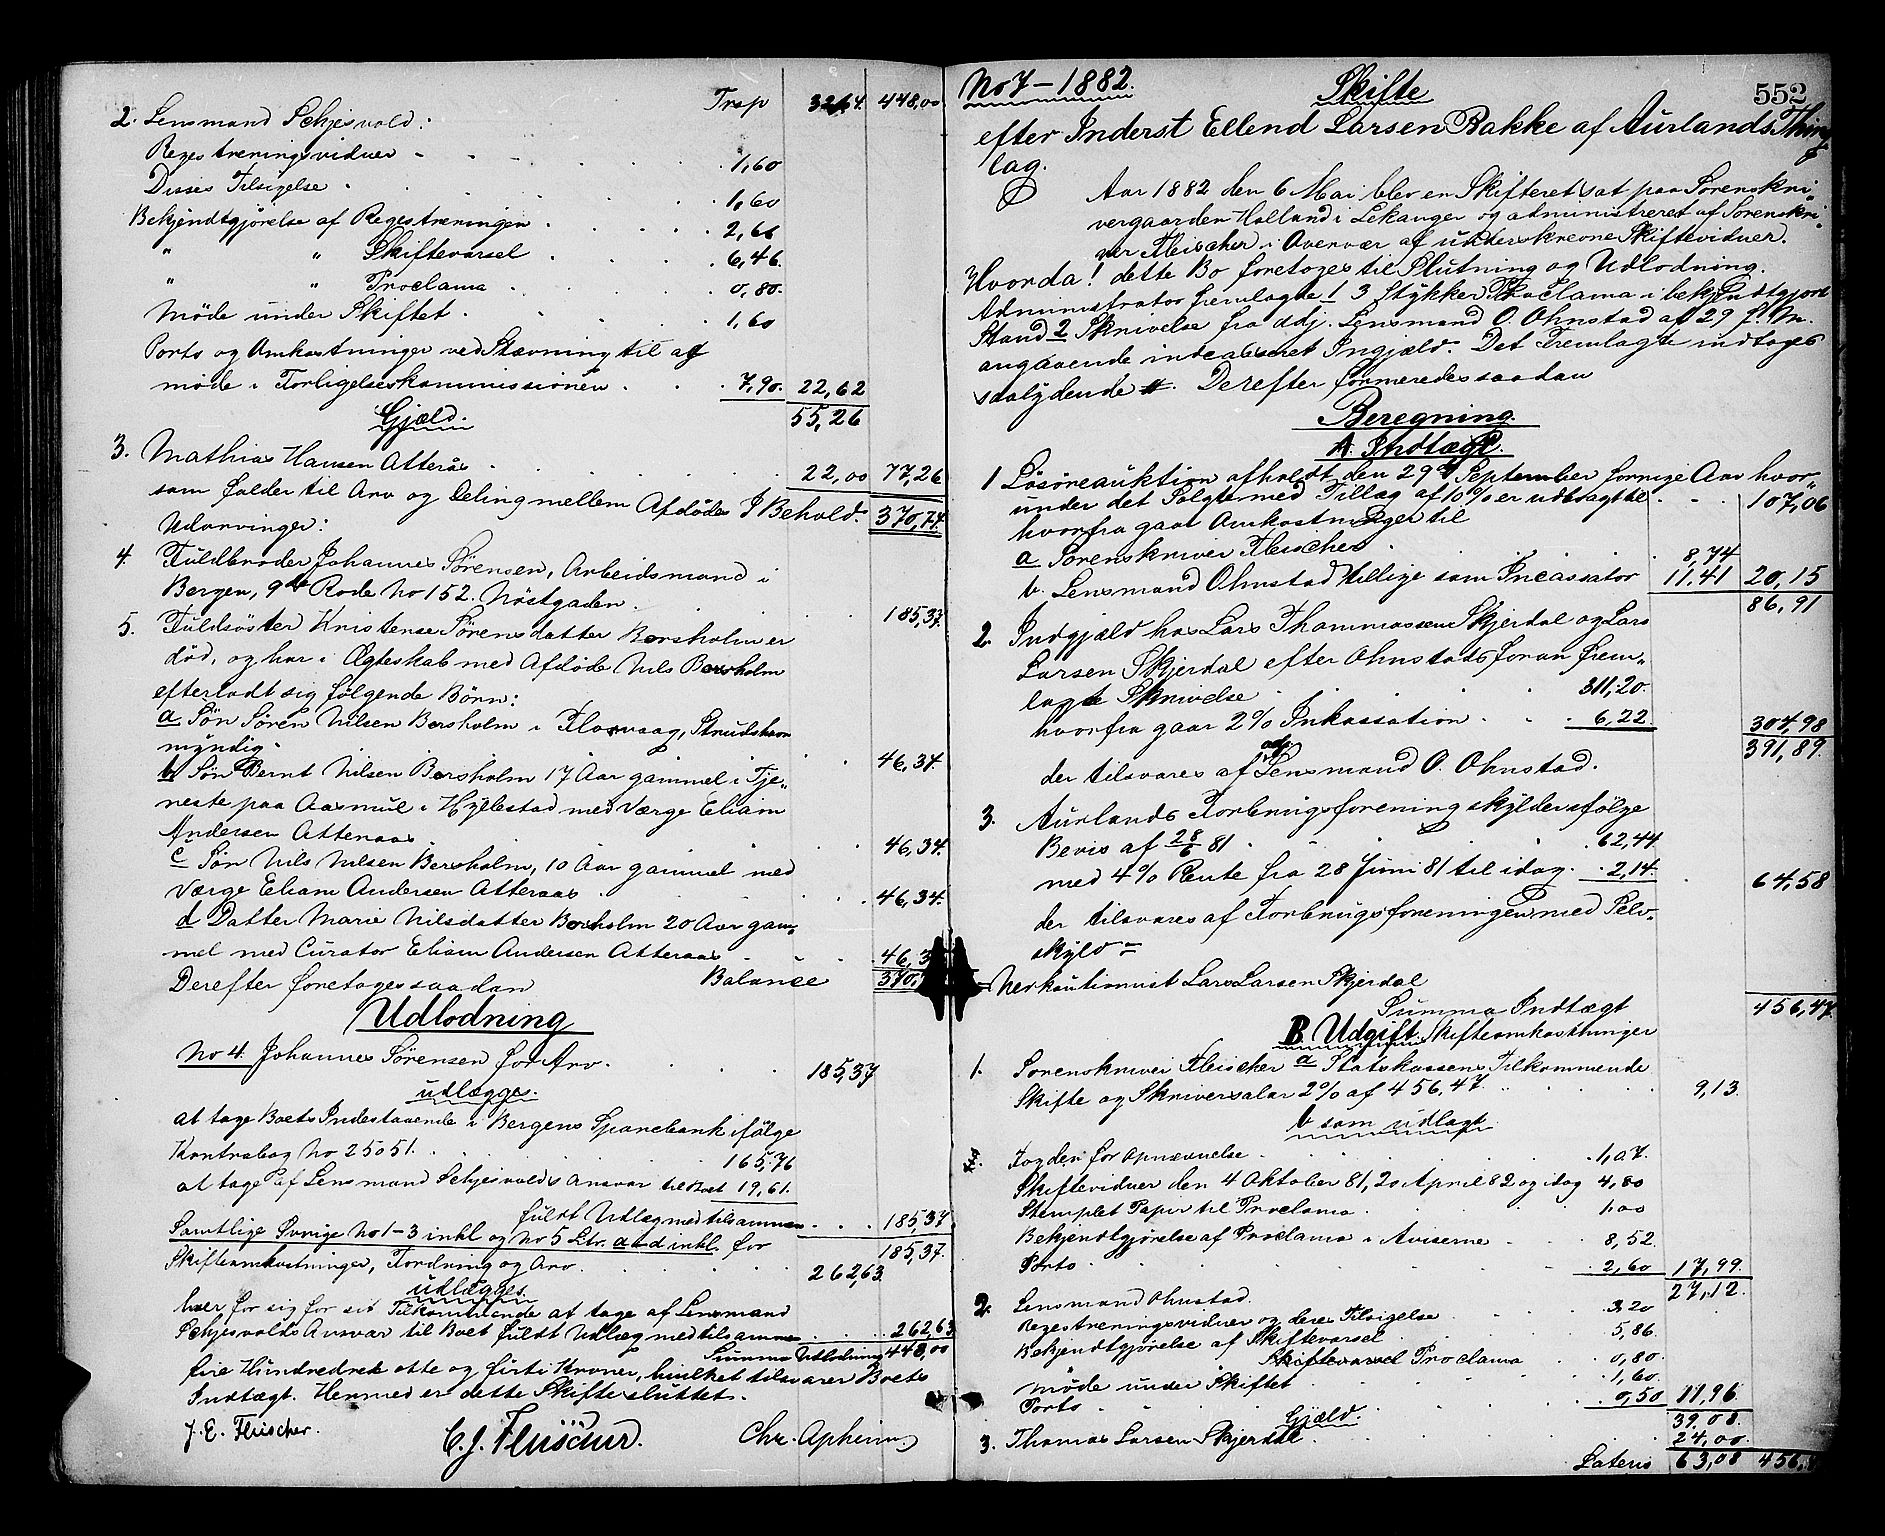 Trsp 32,64. 448,00
2. Lensmand Schjesvold:
Registreringsvidner 1,60
Disses Tilsigelse 1,60
Bekjendtgjörelse af Registreringen 2,66
" " Skiftevarsel 6,46.
" " Proclama 0,80.
Möde under Skiftet 1,60
Porto og Omkostninger ved Stævning til og
möde i Forligelseskommissionen 7,90. 22,62
55,26
Gjæld.
3. Mathias Hansen Atterås 22,00 77,26
I Behold. 370,74.
som falder til Arv og Deling mellem Afdödes
Udarvinger:
4. Fuldbroder Johannes Sörensen, Arbeidsmand i
Bergen, 9de Rode No 152. Nöstgaden. 185,37.
5. Fuldsöster Kristense Sörensdatter Borsholm er
död, og har i Ægteskab med Afdöde Nils Borsholm
efterladt sig fölgende Börn:
a Sön Sören Nilsen Borsholm i Florvaag, Strudshavn
myndig. 46,34.
b Sön Bernt Nilsen Borsholm 17 Aar gammel i Tje-
neste paa Aasmul i Hyllestad med Værge Eliam
Andersen Atteraas 46,34.
c Sön Nils Nilsen Borsholm, 10 Aar gammel med
Værge Eliam Andersen Atteraas 46,34.
d Datter Marie Nilsdatter Borsholm 20 Aar gam-
mel med Curator Eliam Andersen Atteraas 46,3
Derefter foretoges saadan Balance 370,
Udlodning
No 4. Johannes Sörensen for Arv. 185,37
udlægges.
at tage Boets Indestaaende i Bergens Sparebank ifölge
Kontrabog No 2505 1. 165,76
at tage af Lensmand Schjesvolds Ansvar til Boet 19,61.
fuldt Udlæg med tilsammen 185,37.
Samtlige Övrige No 1-3 inkl og No 5 Ltr. a-d inkl. for 185,37.
Skifteomkostninger, Fordring og Arv. 262,63.
udlægges.
hver for sig for sit Tilkommende at tage af Lensmand
Schjesvolds Ansvar til Boet fuldt Udlæg med tilsammen 262,63
Summa Udlodning 448,00
fire Hundredrede otte og firti Kroner, hvilket tilsvarer Boets
Indtægt. Hermed er dette Skifte sluttet.
J. E. Fleischer. C. J. Fleischer. Chr. Apheim
No 7 - 1882. Skifte 552
efter Inderst Ellend Larsen Bakke af Aurlands Thing
lag.
Aar 1882 den 6 Mai blev en Skifteret sat paa Sorenskri-
vergaarden Halland i Lekanger og administreret af Sorenskri-
ver Fleischer i Overvær af underskrevne Skiftevidner.
Hvorda! dette Bo foretoges til Slutning og Udlodning.
Administrator fremlagde 1 3 Stykker Proclama i bekjendtgjort
Stand 2 Skrivelse fra adj. Lensmand O. Ohnstad af 29 f. M.
angaaende indcasseret Ingjæld. Det Fremlagte indtages
saalydende #. Derefter formeredes saadan
Beregning.
A. Indtægt.
1 Lösöreauktion afholdt den 29de September forrige Aar hvor-
under det Solgte med Tillæg af 10% er udbragt til 107,06
hvorfra gaar Omkostninger til
a Sorenskriver Fleischer 8,74
b. Lensmand Ohnstad tillige som Incassator 11,41 20,15
86,91
2. Indgjæld hos Lars Thommassen Skjerdal og Lars
Larsen Skjerdal efter Ohnstads foran frem-
lagte Skrivelse 311,20.
hvorfra gaar 2% Inkassation 6,22. 304,98
391,89.
der tilsvares af adj. Lensmand O. Ohnstad.
3. Aurlands Forbrugsforening skylder ifölge
Bevis af 28/6 81 62,44
med 4% Rente fra 28 Juni 81 til idag 2,14. 64,58
der tilsvares af Forbrugsforeningen med Selv-
skyld-
nerkautionist Lars Larsen Skjerdal
Summa Indtægt 456,47.
B. Udgift. Skifteomkostninger
1. Sorenskriver Fleischer a Statskassens Tilkommende
Skifte og Skriversalar 2% af 456,47 9,13.
b som udlagt
Fogden for Opnævnelse 1,07.
Skiftevidner den 4 Oktober 81, 20 April 82 og idag 4,80
Stemplet Papir til Proclama 1,00
Bekjendtgjörelse af Proclama i Aviserne 8,52.
Porto 2,60 17,99.
27,12.
2. Lensmand Ohnstad.
Registreringsvidner og deres Tilsigelse 3,20
Bekjendtgjörelse af Skiftevarsel 5,86.
Skiftevarsel Proclama 0,80.
Möde under Skiftet 1,60.
Porto 0,50 11,96
39,08.
Gjæld.
3. Thomas Larsen Skjerdal 24,00.
Lateris 63,08 456,